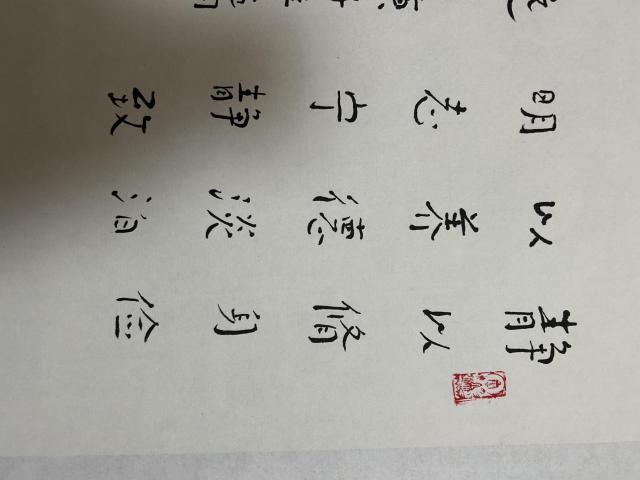 静以修身俭
以养德淡泊
明志宁静致